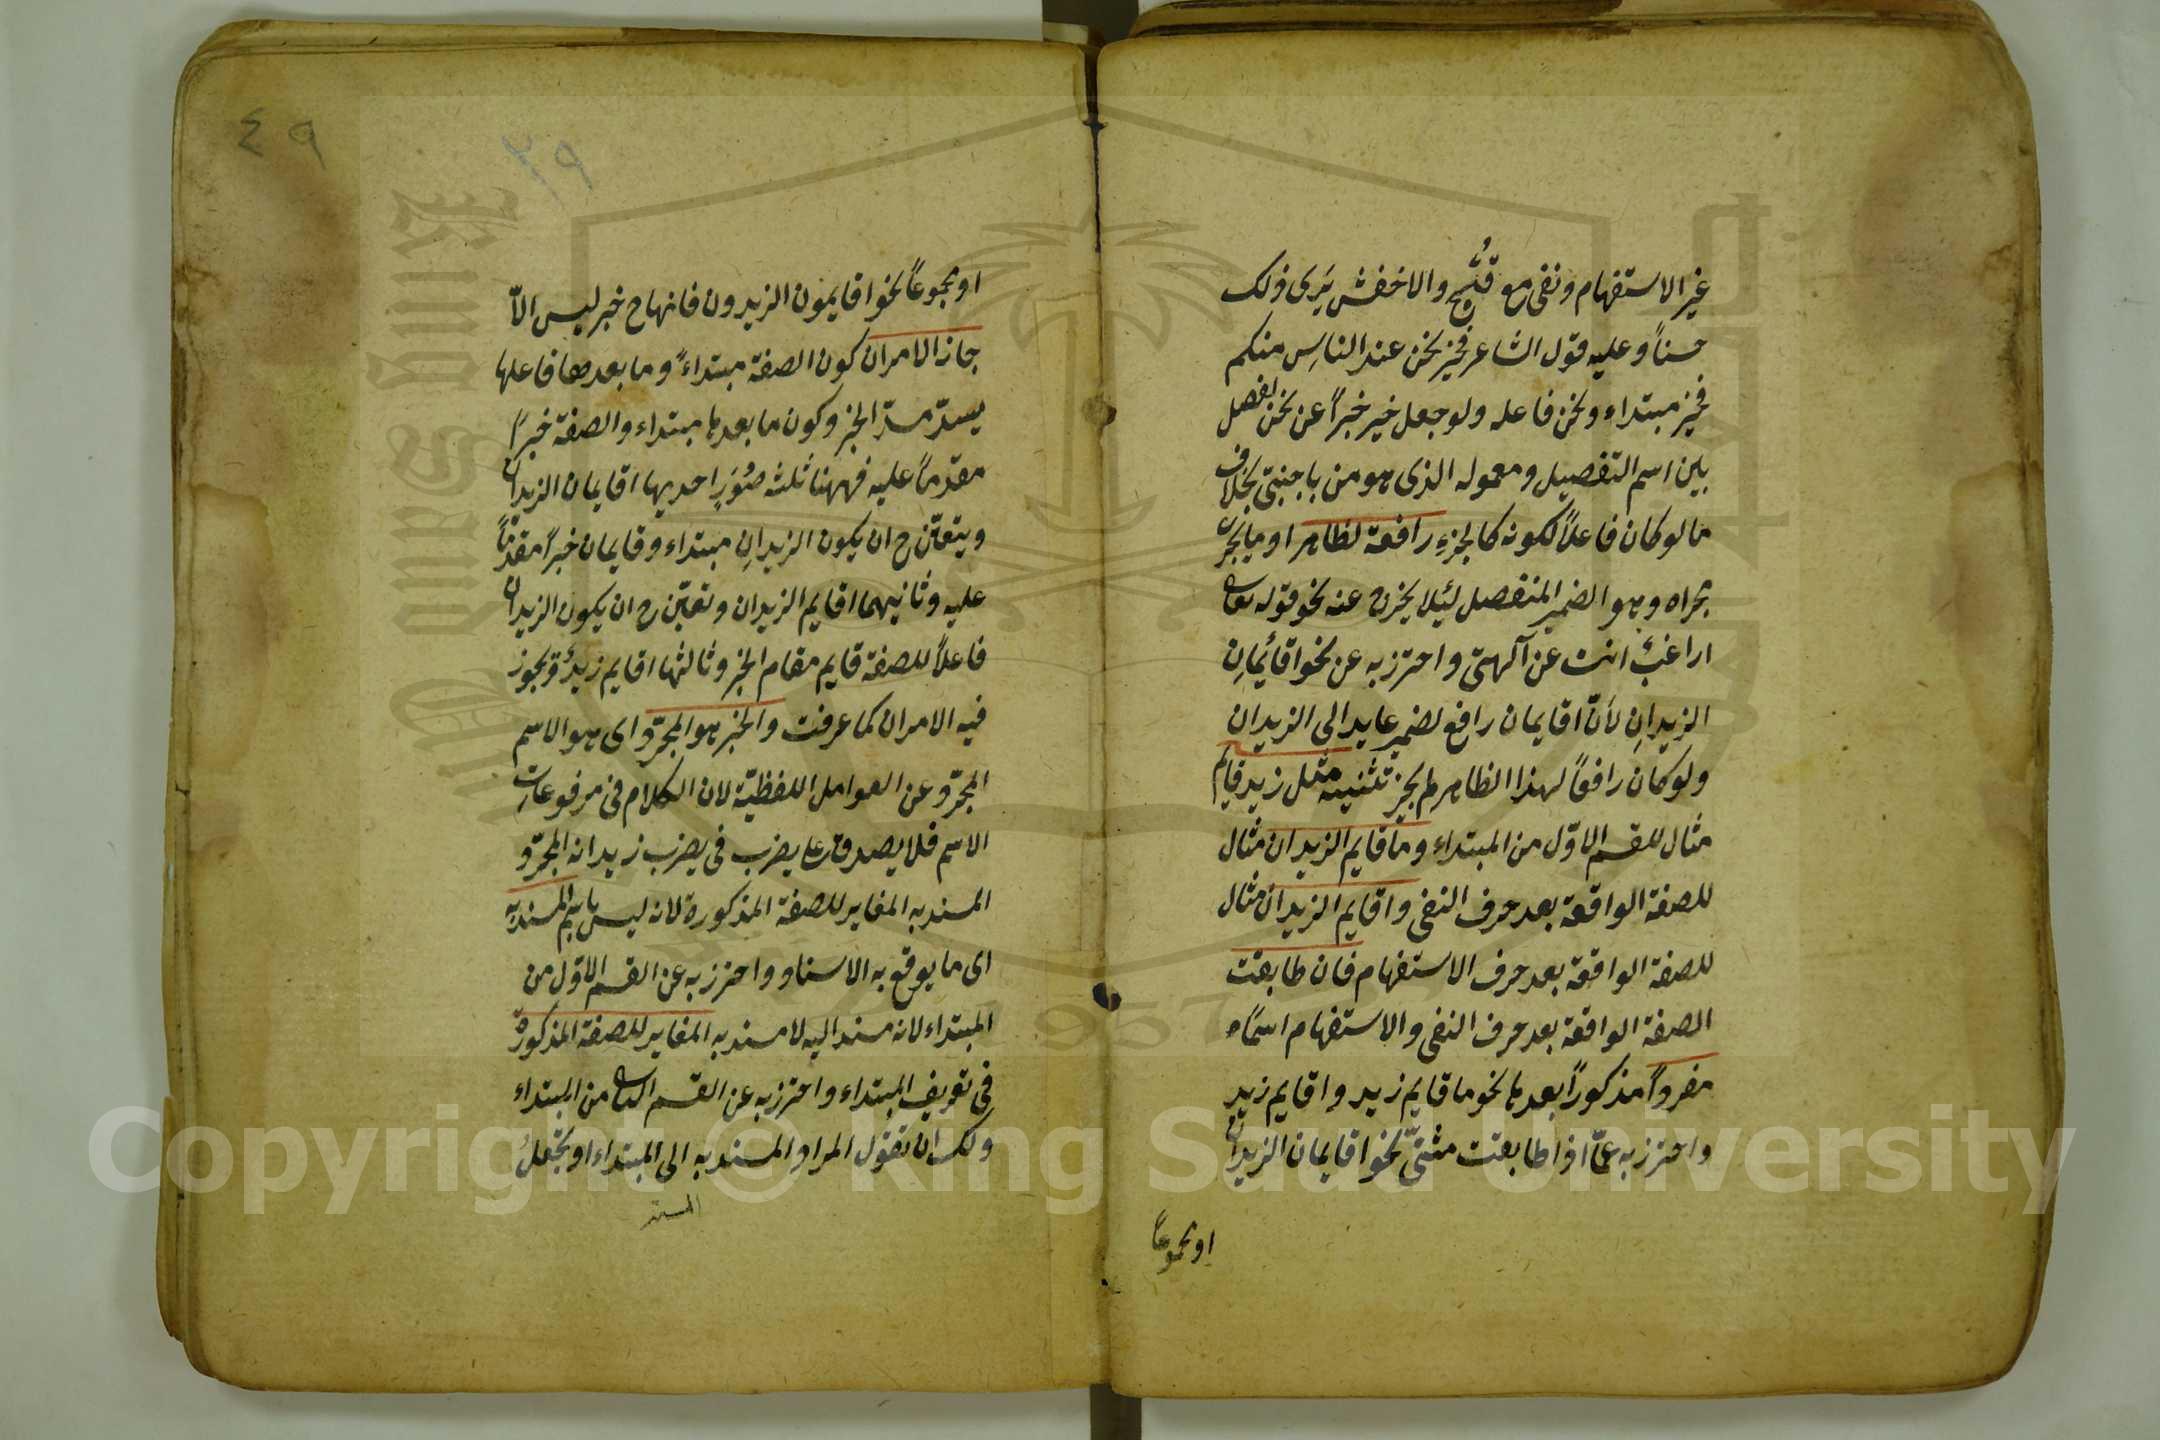 غير الاستفهام ونفى مع قُبْح والاخفش يَرى ذلك
حسناً وعليه قول الشاعر فخير نحن عند الناسِ منكم
فخير مبتداء ونحن فاعله ولو جعل خير خبراً عن نحن لفصل
بين اسم التفضيل ومعموله الذى هو من باجنبىّ بخلاف
ما لو كان فاعلاً لكونه كالجزءِ رافعة لظاهر او ما يجرى
مجراه وهو الضمير المنفصل لئلا يخرج عنه نحو قوله تعا
اراغبٌ انت عن آلهتى واحترز به عن نحو اقائمانِ
الزيدانِ لأنّ اقايمان رافع لضمير عايد الى الزيدان
ولو كان رافعاً لهذا الظاهر لم يجز تثنيته مثل زيد قايم
مثال للقسم الاوّل من المبتداء وما قايم الزيدان مثال
للصفة الواقعة بعد حرف النفى واقايم الزيدان مثال
للصفة الواقعة بعد حرف الاستفهام فان طابقت
الصفة الواقعة بعد حرف النفى والاستفهام اسمًا
مفرداً مذكوراً بعدها نحو ما قايم زيد واقايم زيد
واحترز به عمّا اذا طابقت مثنىّ نحو اقايمان الزيدان
او مجموعاً
٤٩
٤٩
او مجموعاً نحو اقايمون الزيدون فانها ح خبر ليس الاّ
جاز الامران كون الصفة مبتداءً وما بعدها فاعلها
يسدّ مسدّ الخبر وكون ما بعدها مبتداء والصفة خبراً
مقدماً عليه فههنا ثلثه صُوَرٍ احديها اقايمان الزيدان
ويتعيّن ح ان يكون الزيدانِ مبتداء وقايمان خبراً مقدّماً
عليه وثانيهما اقايم الزيدان وتعيّن ح ان يكون الزيدان
فاعلاً للصفة قايم مقام الخبر وثالثها اقايم زيدٌ ويجوز
فيه الامران كما عرفت والخبر هو المجرّد اى هو الاسم
المجرّد عن العوامل اللفظيّة لان الكلام فى مرفوعاتِ
الاسم فلا يصدق على يضرب فى يضرب زيد انه المجرّد
المسند به المغاير للصفة المذكورة لانه ليس باسم المسند به
اى ما يوقع به الاسناد واحترز به عن القسم الاوّل من
المبتداء لانه مسند اليه لا مسند به المغاير للصفة المذكورة
فى تعريف المبتداء واحترز به عن القسم الثانى من المبتداء
ولك ان تقول المراد المسند به الى المبتداء او تجعل
المسند
King Saud University
957
Copyright © King Saud University